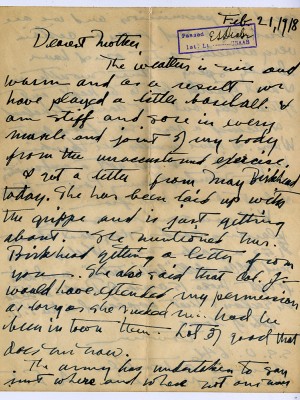 Feb 21, 1918
Passed
1st Lt.
Dearest Mother,
The weather is nice and
warm and as a result we
have played a little baseball. I
am stiff and sore in every
muscle and joint of my body
from the unaccustomed exercise.
I got a letter from May Birkhead
today. She has been laid up with
the grippe and is just getting
about. She mentioned Mrs.
Birkhead getting a letter from
you. She also said that Col. J-
would have extended my permission
as long as she needed me had he
been in town then. Lot of good that
does me now.
The army has undertaken to say
just where and where not our men